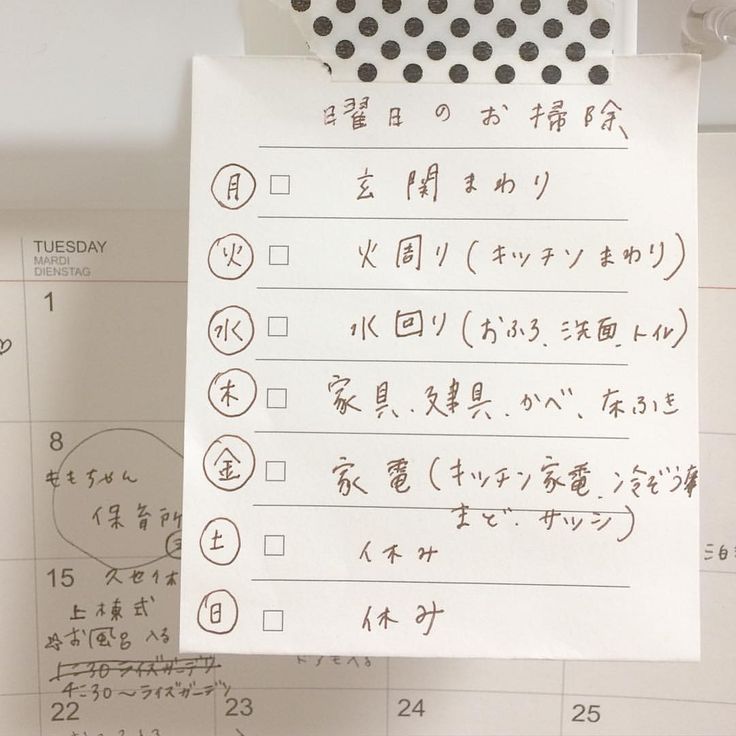 曜日のお掃除
月 □ 玄関まわり
火 □ 火周り(キッチンまわり)
水 □ 水回り(おふろ、洗面、トイレ)
木 □ 家具、建具、かべ、床ふき
金 □ 家電(キッチン家電、冷ぞう庫
まど、サッシ)
土 □ 休み
日 □ 休み
TUESDAY
MARDI
DIENSTAG
1
8
ももちゃん
保育所
15
上棟式
お風呂 入る
4:30〜ライズガーデン
22
23
24
25